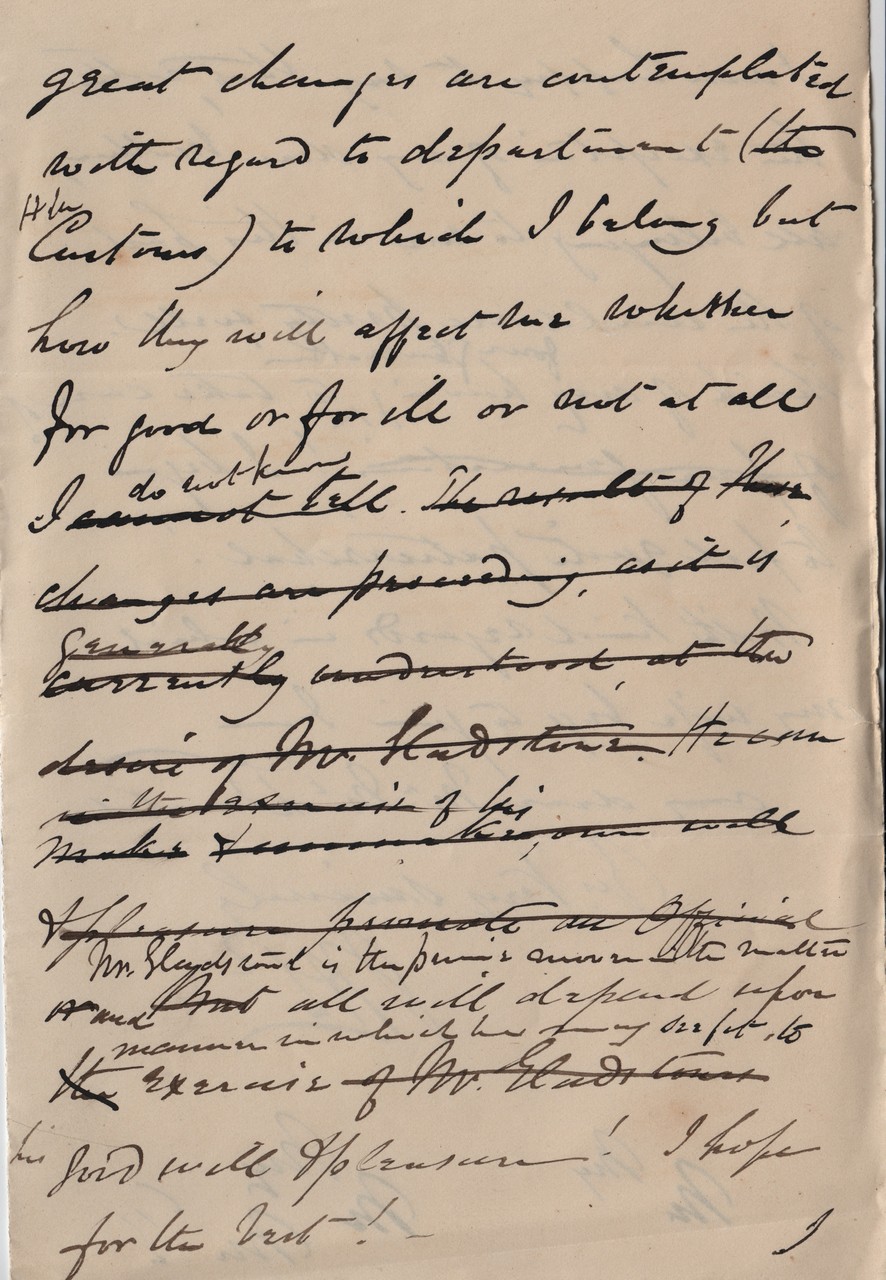 great changes are contemplated
with regard to department (the
H M
Customs) to which I belong but
how they will affect me whether
for good or for ill or not at all
do not know
I cannot tell. The result of these
changes are proceeding, as it is
generally
currently understood, at the
desire of Mr. Gladstone. He can
in the exercise of his
make &  own will
& pleasure promote an Official
Mr. Gladstone is the prime mover in the matter
or and that all will depend upon
manner in which he may see fit, to
the exercise of Mr. Gladstones
his
good will & pleasure! I hope
for the best! -
I